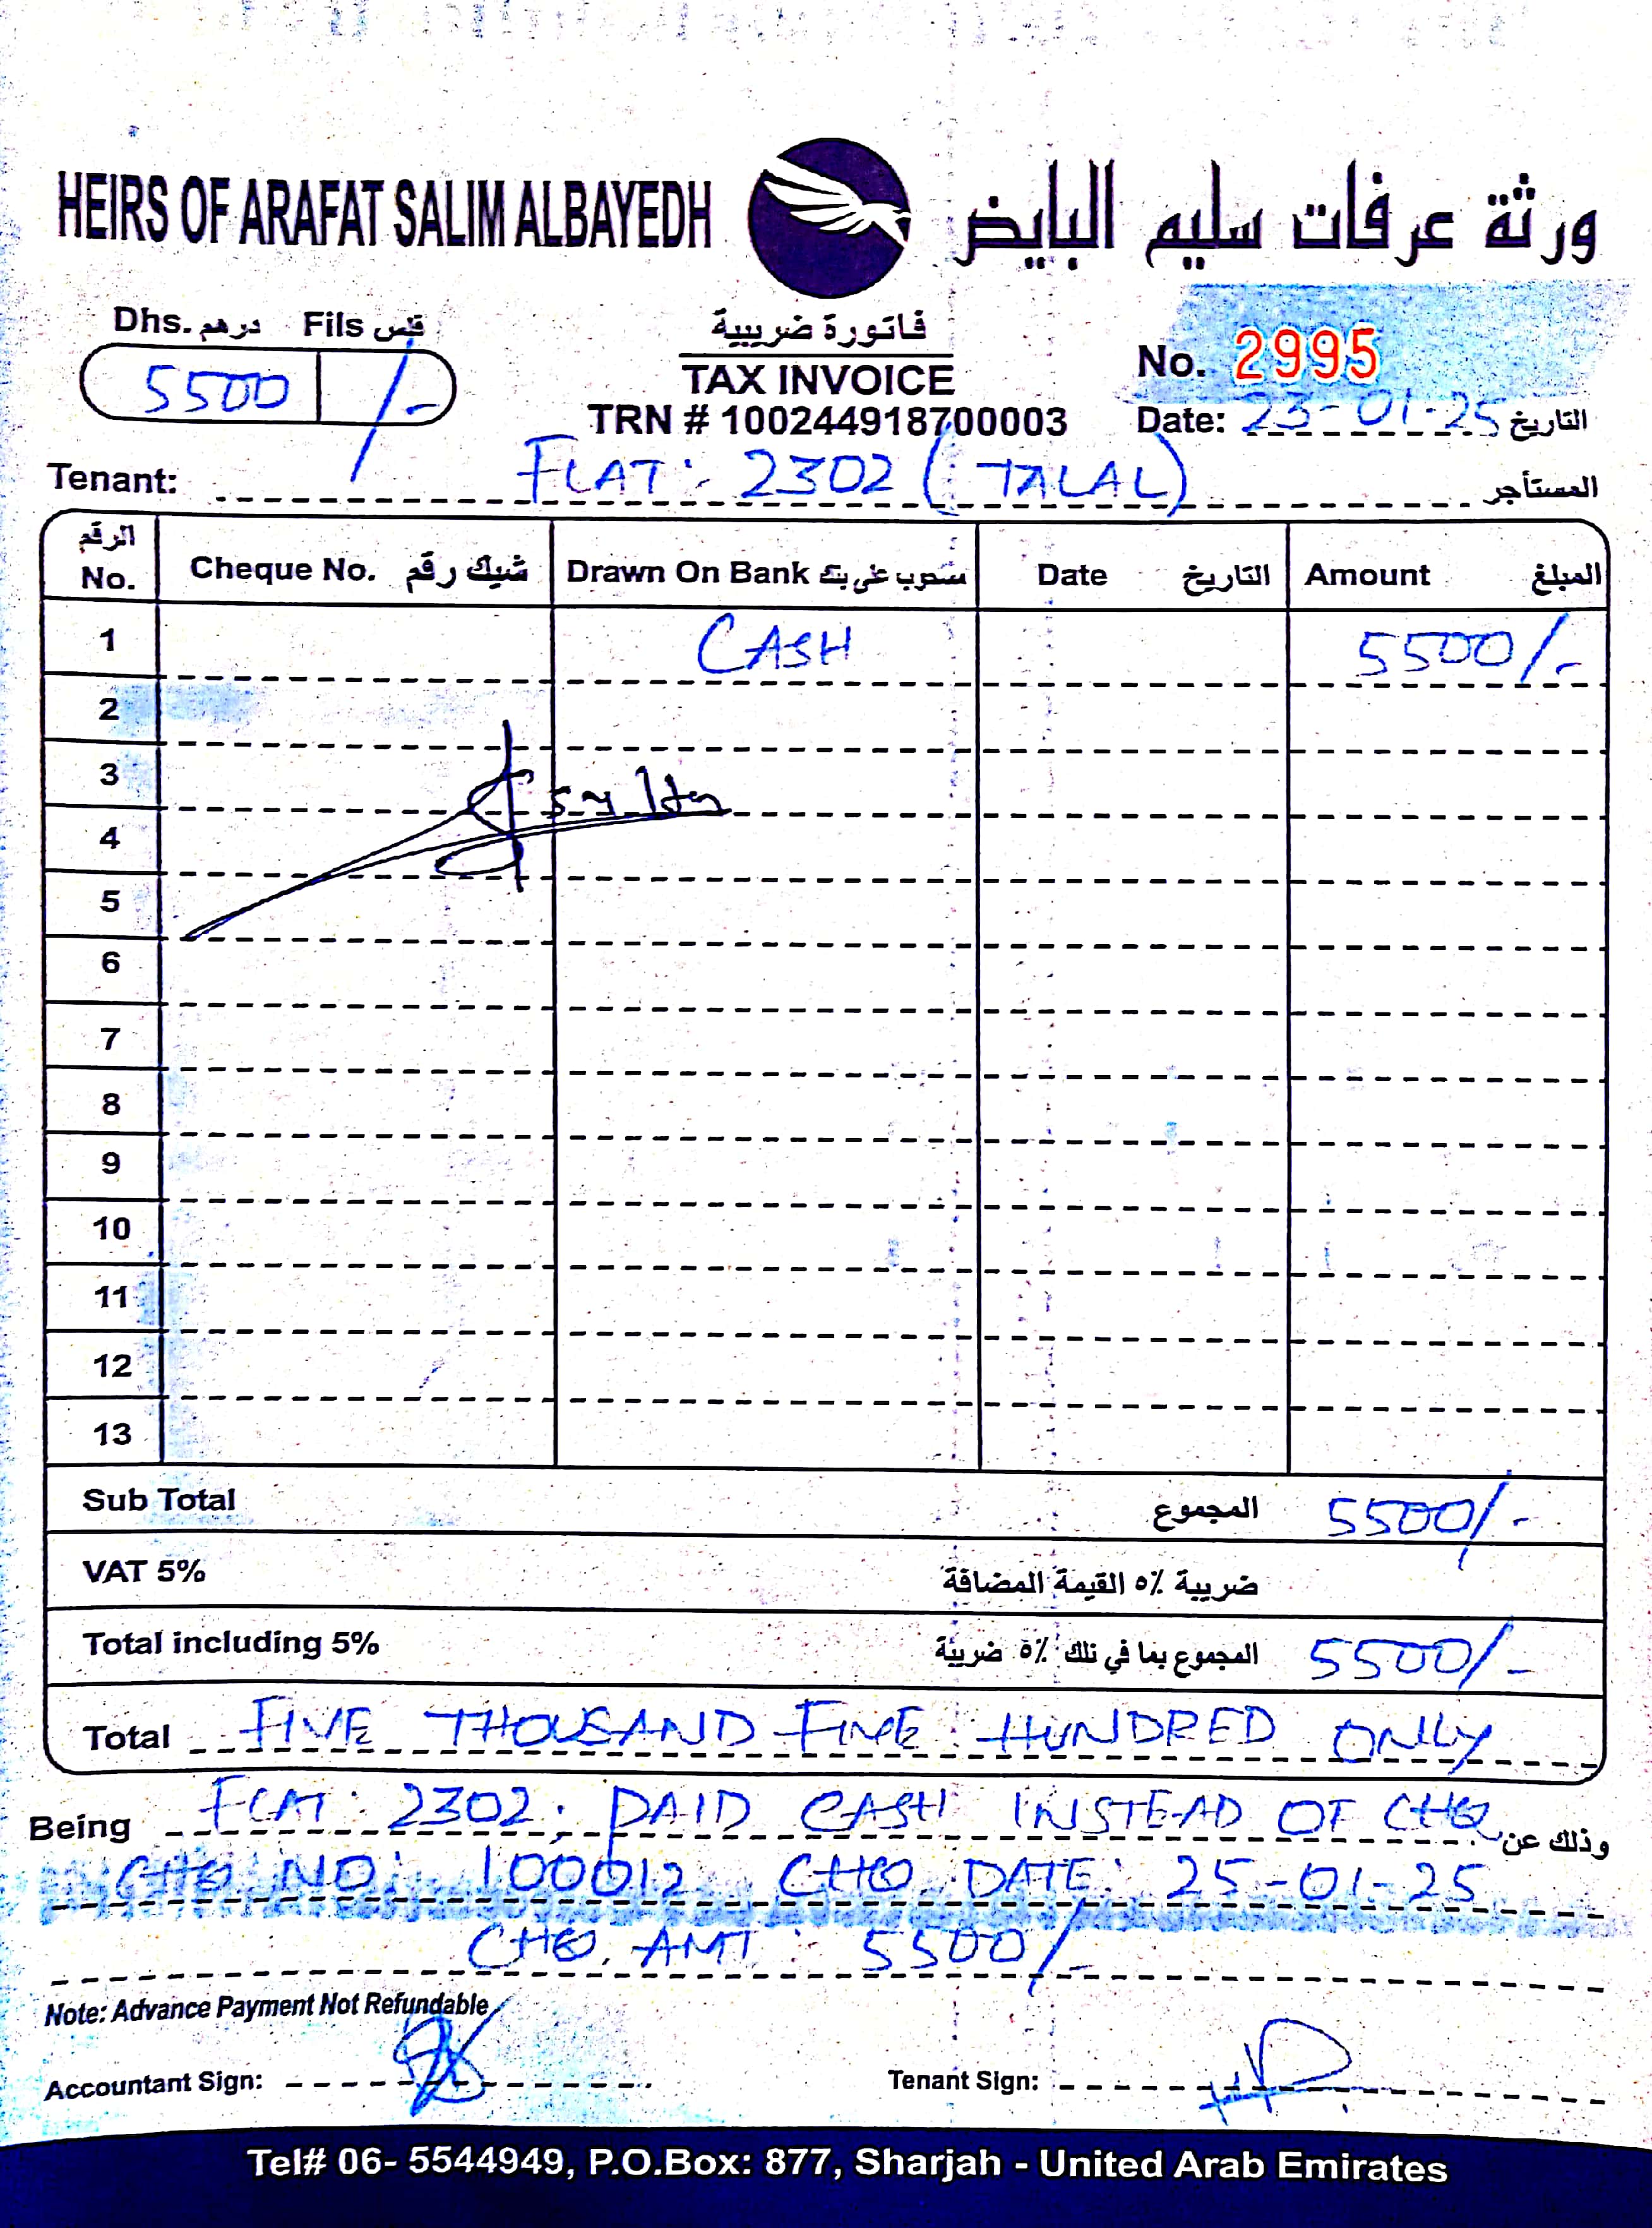 HEIRS OF ARAFAT SALIM ALBAYEDH ورثة عرفات سليم البايض
Dhs. درهم Fils فلس
5500 /-
فاتورة ضريبية
TAX INVOICE
TRN # 100244918700003
No. 2995
Date: 23-01-25 التاريخ
Tenant: FLAT: 2302 (TALAL) المستأجر
الرقم No. Cheque No. شيك رقم Drawn On Bank مسحوب على بنك Date التاريخ Amount المبلغ
1 CASH 5500/-
2
3
4
5
6
7
8
9
10
11
12
13
Sub Total المجموع 5500/-
VAT 5% ضريبة ٥٪ القيمة المضافة
Total including 5% المجموع بما في ذلك ٥٪ ضريبة 5500/-
Total FIVE THOUSAND FIVE HUNDRED ONLY
Being FLAT: 2302, PAID CASH INSTEAD OF CHQ وذلك عن
CHQ NO: 100012 CHQ DATE: 25-01-25
CHQ. AMT: 5500/-
Note: Advance Payment Not Refundable
Accountant Sign: Tenant Sign:
Tel# 06- 5544949, P.O.Box: 877, Sharjah - United Arab Emirates